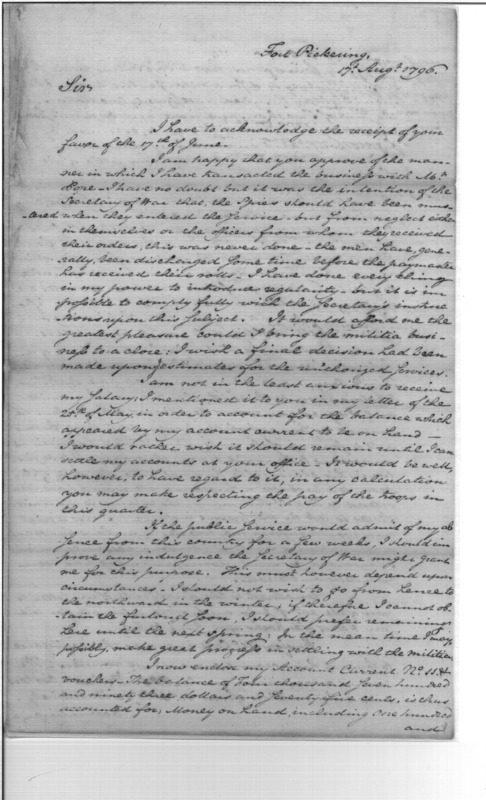 Fort Pickering,
17th Augt. 1796.
Sir,
I have to acknowledge the receipt of your
favor of the 17th of June.
I am happy that you approve of the man-
ner in which I have transacted the business with Mr.
Hore - I have no doubt but it was the intention of the
Secretary of War that, the Spies should have been mus-
-tered when they entered the Service - but from neglect either
in themselves or the officers from whom they received
their orders, this was never done - the men have, gene-
rally, been discharged some time before the paymaster
has received their rolls - I have done every thing
in my power to introduce regularity - but it is im-
possible to comply fully with the Secretary's instruc-
tions upon this subject. It would afford me the
greatest pleasure could I bring the militia busi-
ness to a close; I wish a final decision had been
made upon estimates for the services.
I am not in the least anxious to receive
my Salary; I mentioned it to you in my letter of the
20th of May, in order to account for the balance which
appeared by my account current to be on hand -
I would rather wish it should remain until I can
settle my accounts at your office - It would be well,
however, to have regard to it, in any calculation
you may make respecting the pay of the troops in
this quarter.
If the public Service would admit of my ab
sence from this country for a few weeks, I should im
prove any indulgence the Secretary of War might grant
me for this purpose. This must however depend upon
circumstances - I should not wish to go from hence to
the northward in the winter; if therefore I cannot ob-
tain the furlough soon, I should prefer remaining
here until the next spring; In the mean time I may,
possibly, make great progress in settling with the militia,
I now enclose my Account Current No. 11 &
vouchers - The balance of Four thousand Seven hundred
and ninety three dollars and Seventy five cents, is thus
accounted for, Money on hand, including One hundred
and